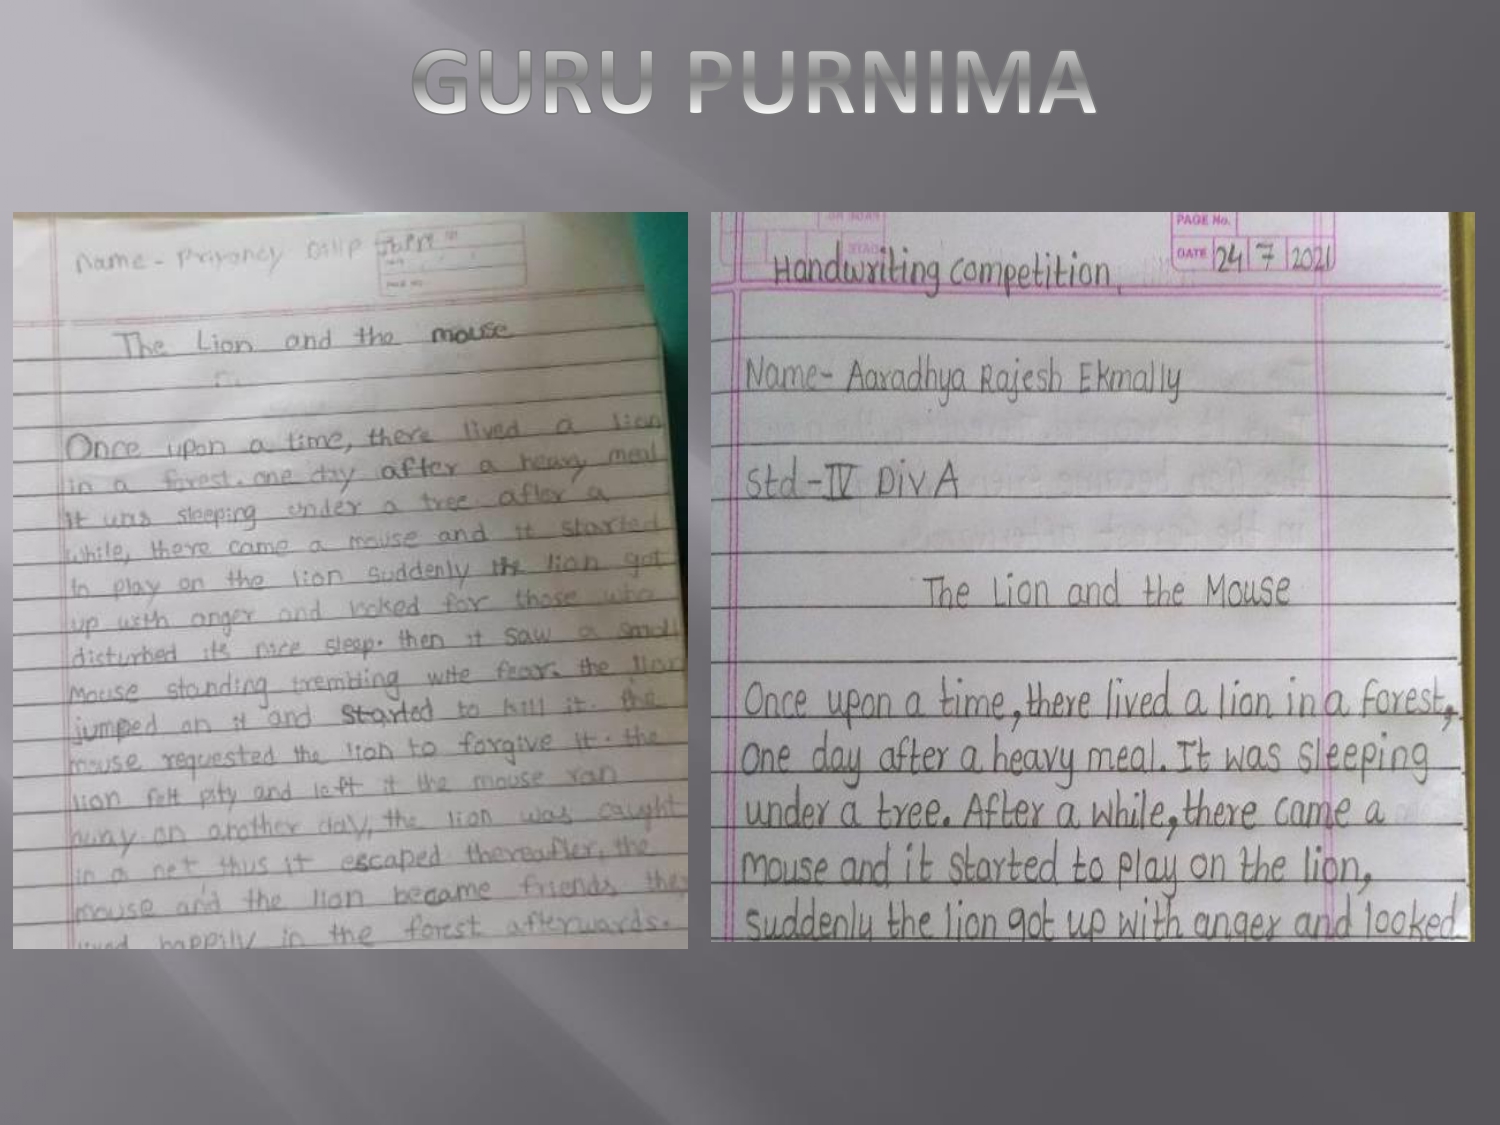 GURU PURNIMA
Name - Priyancy Dilip
The Lion and the mouse
Once upon a time, there lived a lion
in a forest. one day after a heavy meal
it was sleeping under a tree after a
while, there came a mouse and it started
to play on the lion suddenly the lion got
up with anger and looked for those who
disturbed its nice sleep. then it saw a small
Mouse standing trembling wite fear. the lion
jumped on it and started to kill it. the
mouse requested the lion to forgive it. the
lion felt pity and left it the mouse ran
away on another day, the lion was caught
in a net thus it escaped thereafter, the
mouse and the lion became friends they
lived happily in the forest afterwards.
PAGE No.
DATE 24 7 2021
Handwriting competition.
Name- Aaradhya Rajesh Ekmally
Std-IV Div.A
The Lion and the Mouse
Once upon a time, there lived a lion in a forest,
one day after a heavy meal. It was sleeping
under a tree. After a while, there came a
mouse and it started to play on the lion,
suddenly the lion got up with anger and looked